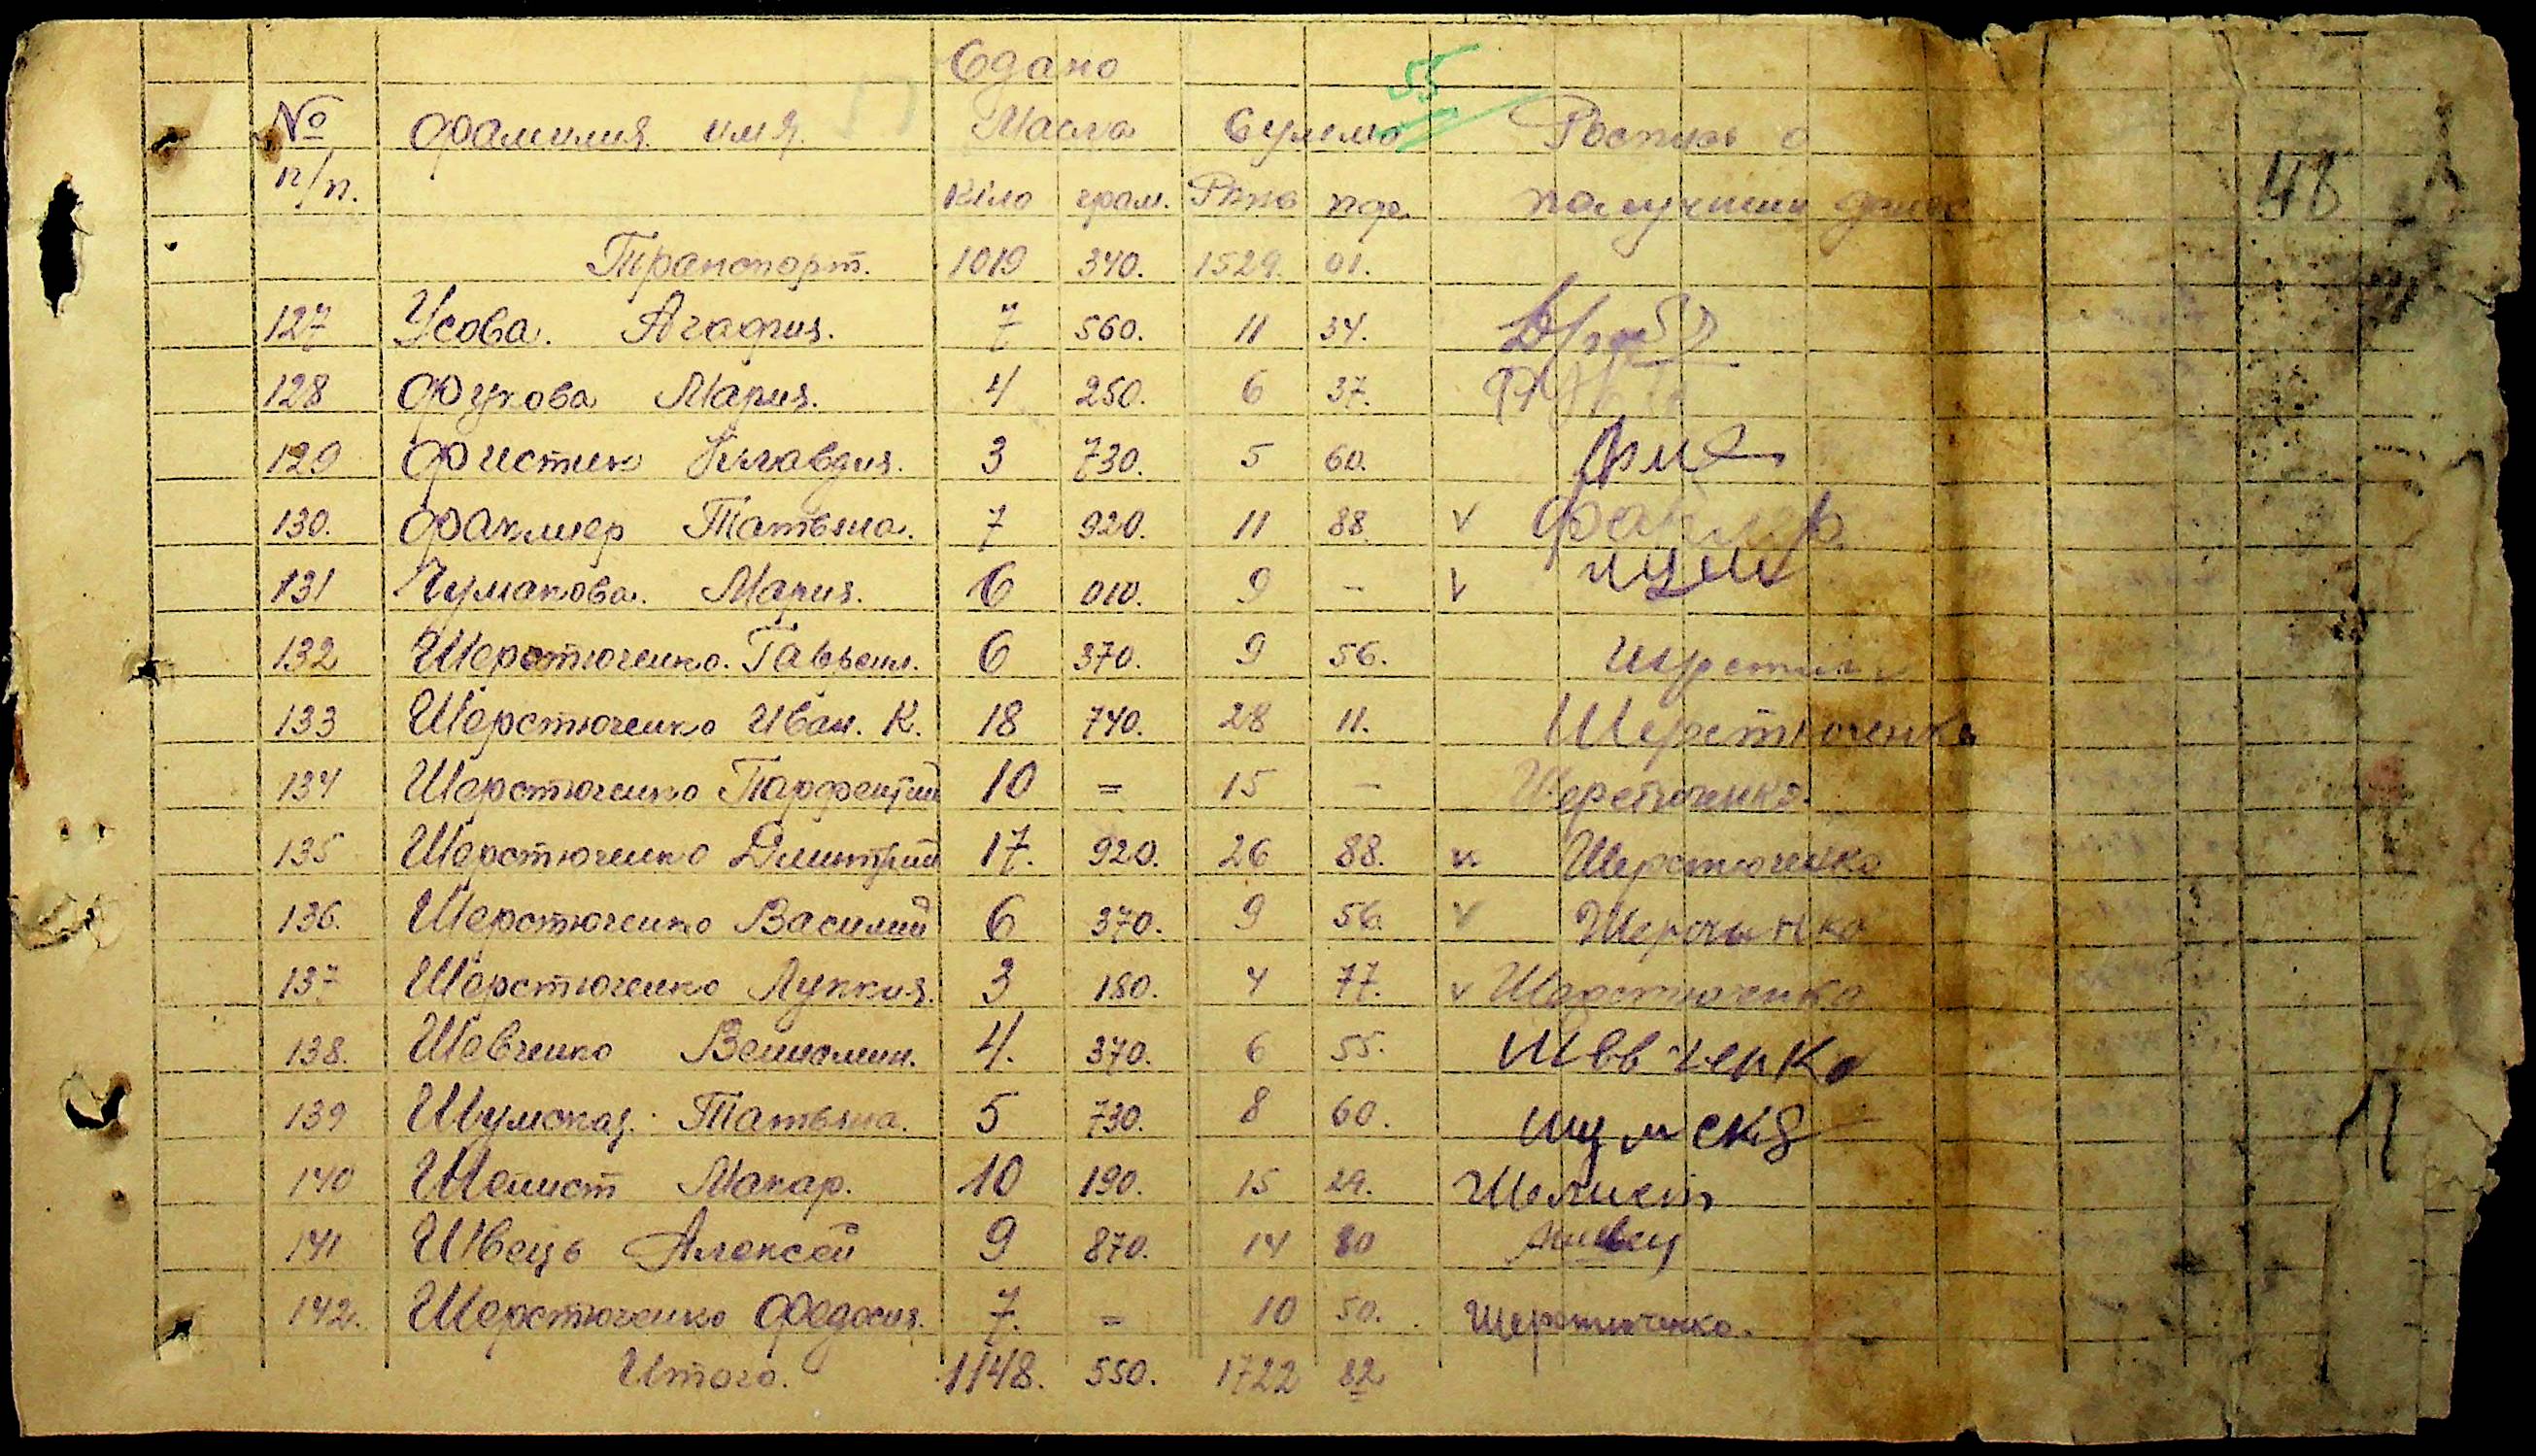 Сдано
55
№ фамилия имя. Масла Сумма Роспись о
п/п. Кіло грам. Ркнв пф. получении денег
48
Транспорт. 1019 340. 1529. 01.
127 Усова. Агафия. 7 560. 11 34.
128 Фучкова Мария. 4 250. 6 37.
129 Фистик Клавдия. 3 730. 5 60.
130. Факлиер Татьяна. 7 920. 11 88. v
131 Чумакова. Мария. 6 010. 9 - v
132 Шерстюченко. Гавреил. 6 370. 9 56.
133 Шерстюченко Иван. К. 18 740. 28 11. Шерстюченко
134 Шерстюченко Парфентий 10 = 15 - Шерстюченко.
135 Шерстюченко Дмитрий 17. 920. 26 88. v Шерстюченко
136. Шерстюченко Василий 6 370. 9 56. v
137 Шерстюченко Луккия. 3 180. 4 77. v Шерстюченко
138. Шевченко Вениомин. 4. 370. 6 55. Шевченко
139 Шумская. Татьяна. 5 730. 8 60. Шумска
140 Шелист Макар. 10 190. 15 29. Шелист
141 Швець Алексей 9 870. 14 80 Ашвец
142. Шерстюченко Федосия. 7. = 10 50. Шерстюченко.
Итого. 1148. 550. 1722 82